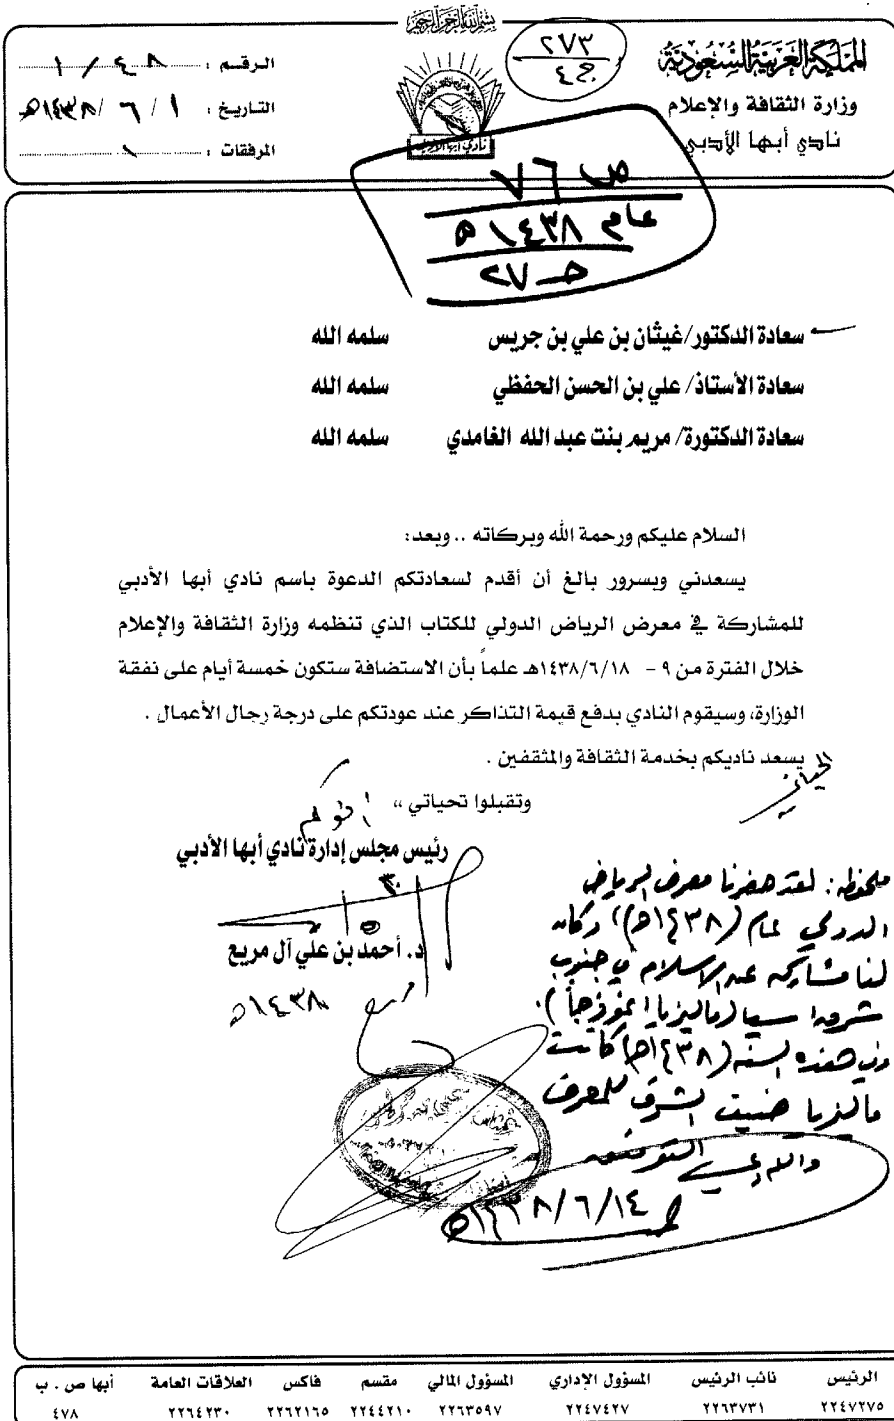 بسم الله الرحمن الرحيم
المملكة العربية السعودية
وزارة الثقافة والإعلام
نادي أبها الأدبي
٢٧٣
ج٤
نادي أبها الأدبي
الرقم : ٤٨ / ١
التاريخ : ١ / ٦ / ١٤٣٨هـ
المرفقات :
ص ٧٦
عام ١٤٣٨هـ
جـ ٢٧
سعادة الدكتور/غيثان بن علي بن جريس سلمه الله
سعادة الأستاذ/ علي بن الحسن الحفظي سلمه الله
سعادة الدكتورة/ مريم بنت عبد الله الغامدي سلمه الله
السلام عليكم ورحمة الله وبركاته .. وبعد:
يسعدني وبسرور بالغ أن أقدم لسعادتكم الدعوة باسم نادي أبها الأدبي
للمشاركة في معرض الرياض الدولي للكتاب الذي تنظمه وزارة الثقافة والإعلام
خلال الفترة من ٩ - ١٤٣٨/٦/١٨هـ علماً بأن الاستضافة ستكون خمسة أيام على نفقة
الوزارة، وسيقوم النادي بدفع قيمة التذاكر عند عودتكم على درجة رجال الأعمال .
يسعد ناديكم بخدمة الثقافة والمثقفين .
وتقبلوا تحياتي ،،
أخوكم
رئيس مجلس إدارة نادي أبها الأدبي
د. أحمد بن علي آل مريع
١٤٣٨هـ
ملحوظة: لقد حضرنا معرض الرياض
الدولي لعام (١٤٣٨هـ) وكان
لنا مشاركة عن الإسلام في جنوب
شرق آسيا (ماليزيا أنموذجاً).
وفي هذه السنة (١٤٣٨هـ) كانت
ماليزيا ضيف الشرف للمعرض
والله التوفيق
١٤٣٨/٦/١٤هـ
الرئيس نائب الرئيس المسؤول الإداري المسؤول المالي مقسم فاكس العلاقات العامة أبها ص . ب
٢٢٤٧٢٧٥ ٢٢٦٣٧٣١ ٢٢٤٧٤٢٧ ٢٢٦٣٥٩٧ ٢٢٤٤٢١٠ ٢٢٦٢١٦٥ ٢٢٦٤٢٣٠ ٤٧٨